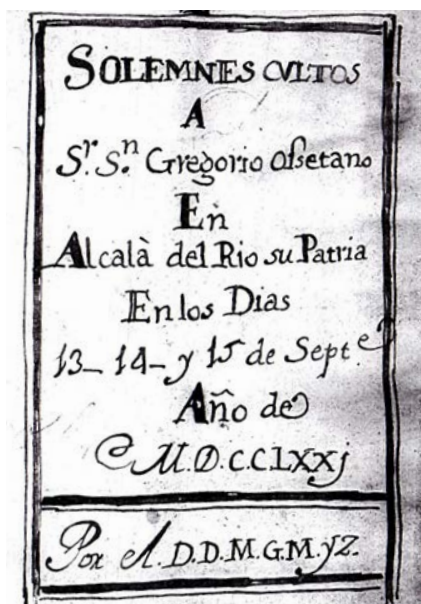 SOLEMNES CVLTOS
A
Sr. Sn. Gregorio Ossetano
En
Alcalà del Rio su Patria
En los Dias
13_ 14_ y 15 de Septe.
Año de
M.D.CCLXXj
Por A.D.D.M.G.M.yz.